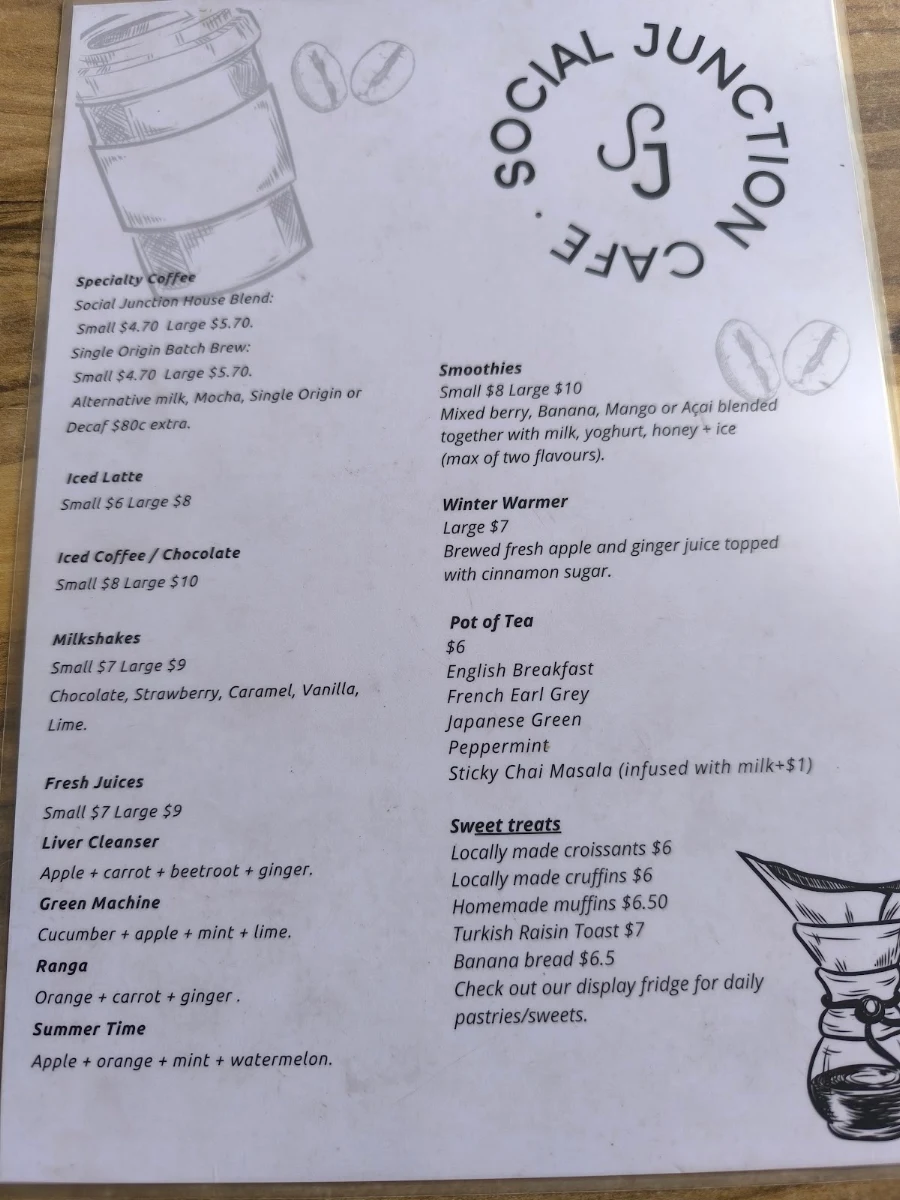 SOCIAL JUNCTION CAFE ·
SJ
Specialty Coffee
Social Junction House Blend:
Small $4.70 Large $5.70.
Single Origin Batch Brew:
Small $4.70 Large $5.70.
Alternative milk, Mocha, Single Origin or
Decaf $80c extra.
Iced Latte
Small $6 Large $8
Iced Coffee / Chocolate
Small $8 Large $10
Milkshakes
Small $7 Large $9
Chocolate, Strawberry, Caramel, Vanilla,
Lime.
Fresh Juices
Small $7 Large $9
Liver Cleanser
Apple + carrot + beetroot + ginger.
Green Machine
Cucumber + apple + mint + lime.
Ranga
Orange + carrot + ginger .
Summer Time
Apple + orange + mint + watermelon.
Smoothies
Small $8 Large $10
Mixed berry, Banana, Mango or Açai blended
together with milk, yoghurt, honey + ice
(max of two flavours).
Winter Warmer
Large $7
Brewed fresh apple and ginger juice topped
with cinnamon sugar.
Pot of Tea
$6
English Breakfast
French Earl Grey
Japanese Green
Peppermint
Sticky Chai Masala (infused with milk+$1)
Sweet treats
Locally made croissants $6
Locally made cruffins $6
Homemade muffins $6.50
Turkish Raisin Toast $7
Banana bread $6.5
Check out our display fridge for daily
pastries/sweets.